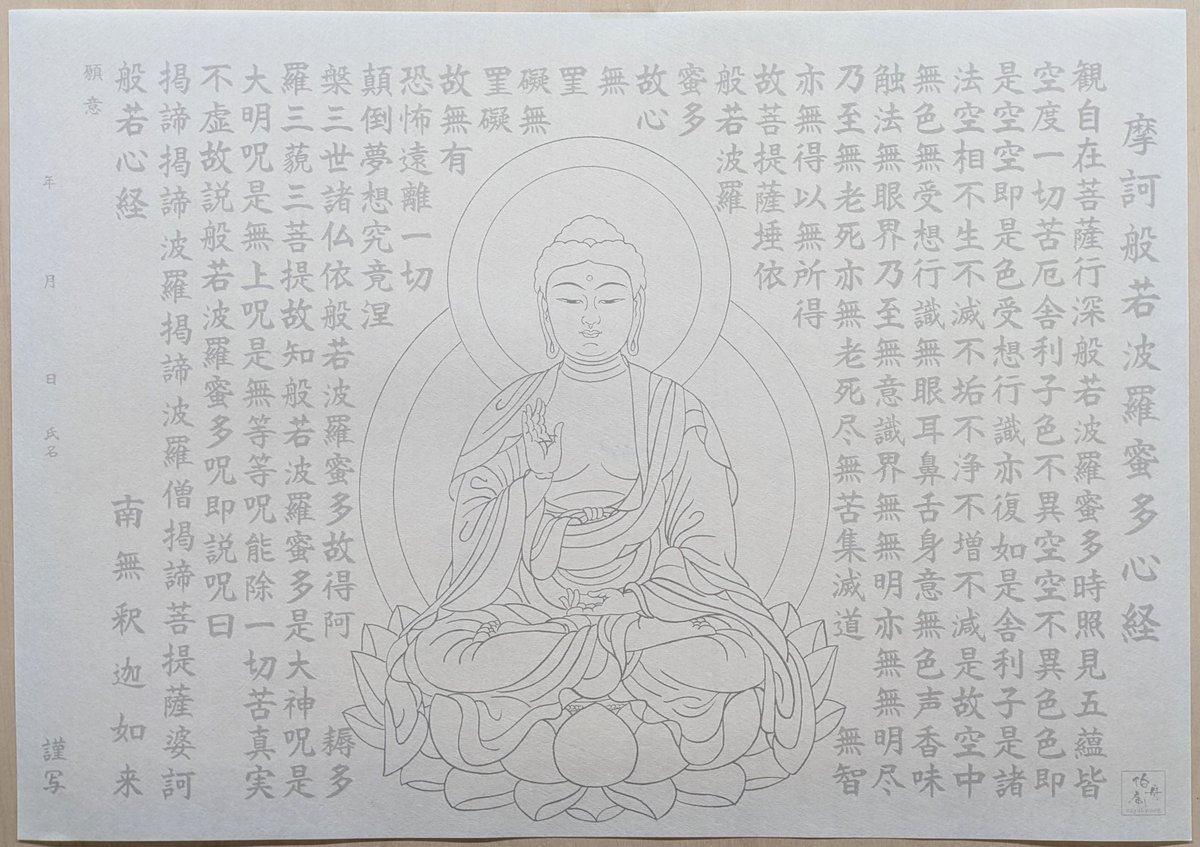 摩訶般若波羅蜜多心経
観自在菩薩行深般若波羅蜜多時照見五蘊皆
空度一切苦厄舎利子色不異空空不異色色即
是空空即是色受想行識亦復如是舎利子是諸
法空相不生不滅不垢不浄不増不減是故空中
無色無受想行識無眼耳鼻舌身意無色声香味
触法無眼界乃至無意識界無無明亦無無明尽
乃至無老死亦無老死尽無苦集滅道 無智
亦無得以無所得
故菩提薩埵依
般若波羅
蜜多
故心
無
罣
礙無
罣礙
故無有
恐怖遠離一切
顛倒夢想究竟涅
槃三世諸仏依般若波羅蜜多故得阿 耨多
羅三藐三菩提故知般若波羅蜜多是大神呪是
大明呪是無上呪是無等等呪能除一切苦真実
不虚故説般若波羅蜜多呪即説呪曰
掲諦掲諦波羅掲諦波羅僧掲諦菩提薩婆訶
般若心経 南無釈迦如来
願意
年 月 日 氏名 謹写